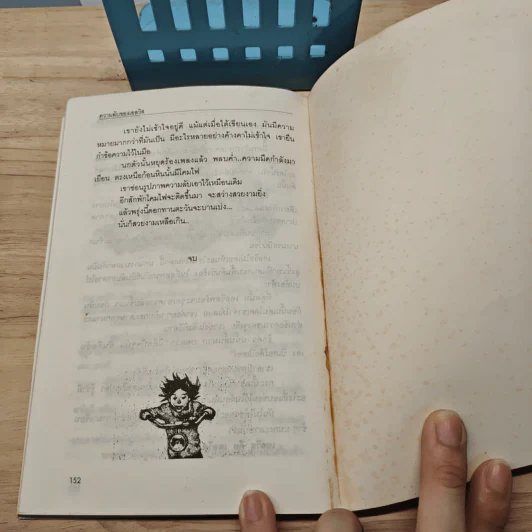 ความลับของเดลใจ
เขายังไม่เข้าใจอยู่ดี แม้แต่เมื่อได้เขียนเอง มันมีความ
หมายมากกว่าที่มันเป็น มีอะไรหลายอย่างค้างคาไม่เข้าใจ เขายืน
กำข้อความไว้ในมือ
นกตัวนั้นหยุดร้องเพลงแล้ว พลบค่ำ..ความมืดกำลังมา
เยือน ตรงเหนือก้อนหินนั้นมีโคมไฟ
เขาซ่อนรูปภาพความลับเอาไว้เหมือนเดิม
อีกสักพักโคมไฟจะติดขึ้นมา จะสว่างสวยงามยิ่ง
แล้วพรุ่งนี้ดอกทานตะวันจะบานเบ่ง...
นั่นก็สวยงามเหลือเกิน..
จบ
152